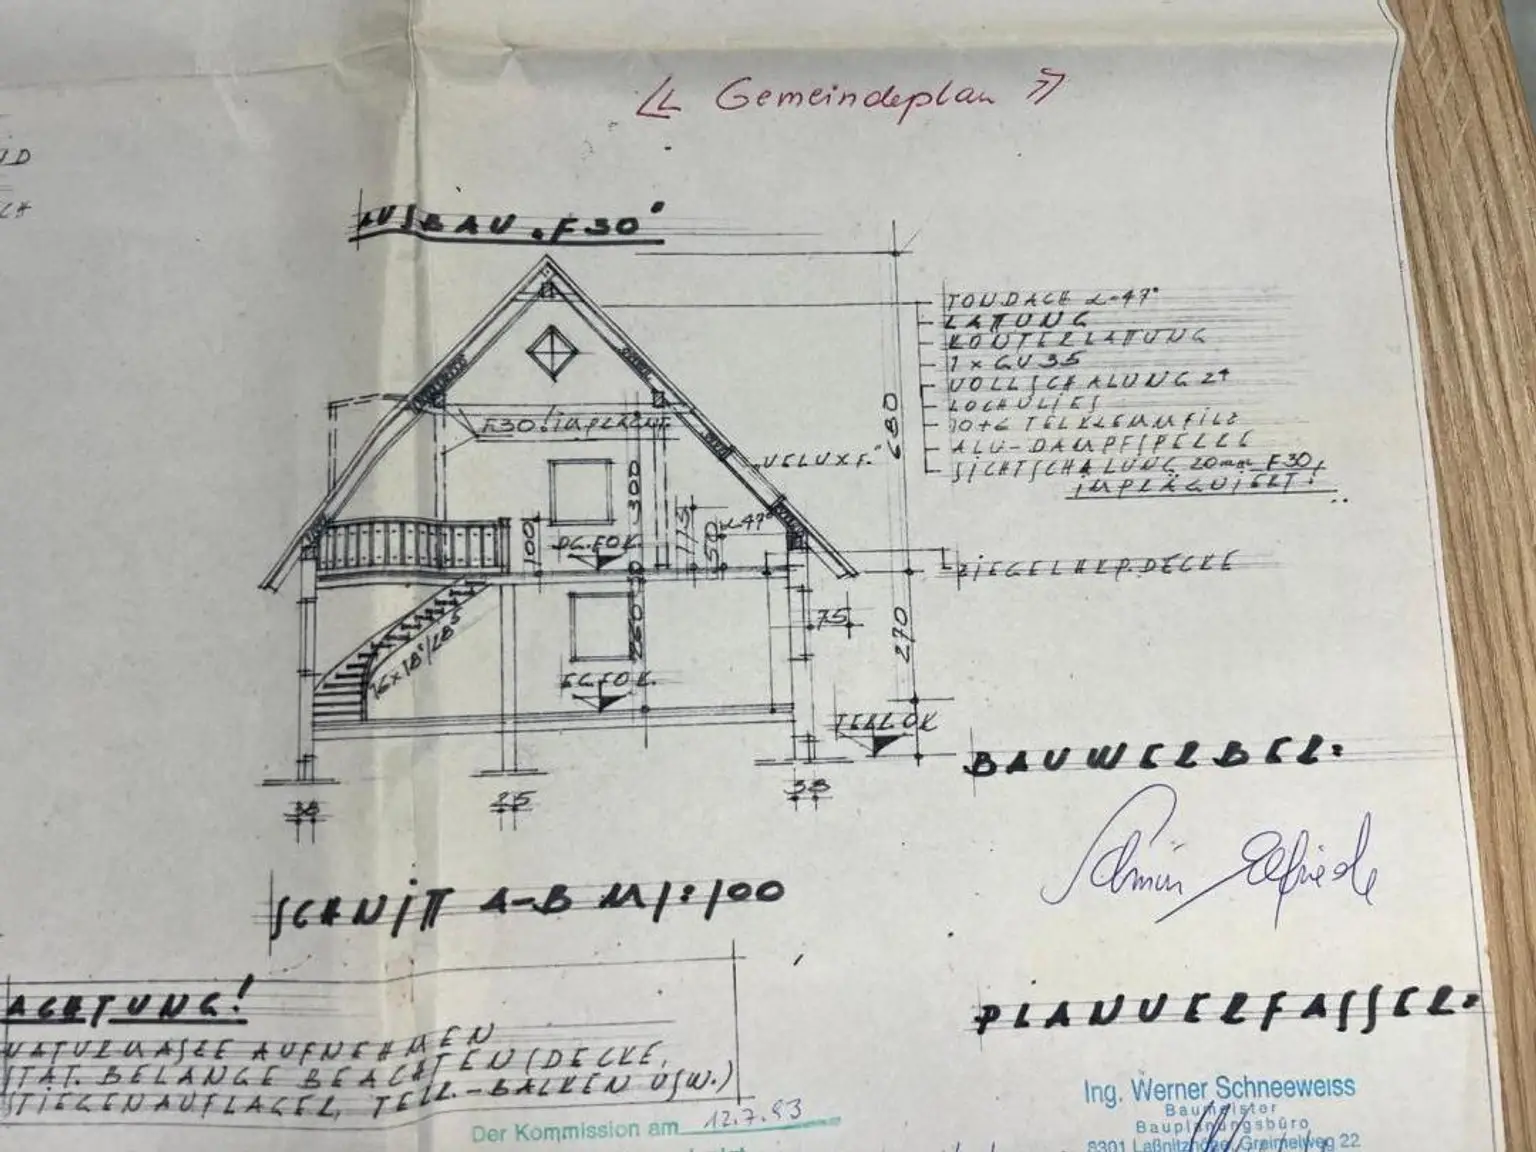 << Gemeindeplan >>
UD
CH
AUSBAU „F30"
TONDACH α=47°
LATTUNG
KONTERLATTUNG
1 x GV 35
VOLLSCHALUNG 24
LOCHVLIES
ALU-DAMPFSPERRE
SICHTSCHALUNG 20mm F30,
IMPRÄGNIERT!
680
F30! IMPRÄGN.
„VELUXF."
300
100
115
150
α=47°
DG.FOK
30
ZIEGELHKP.DECKE
260
75
270
16x18°/285
EG.FOK.
TERR.OK
38
25
38
BAUWERBER:
SCHNITT A-B M 1:100
ACHTUNG!
NATURMASSE AUFNEHMEN
STAT. BELANGE BEACHTEN (DECKE,
STIEGENAUFLAGER, TERR.-BALKEN USW.)
PLANVERFASSER:
Der Kommission am 12.7.93
Ing. Werner Schneeweiss
Baumeister
Bauplanungsbüro
8301 Laßnitzhöhe, Greimelweg 22